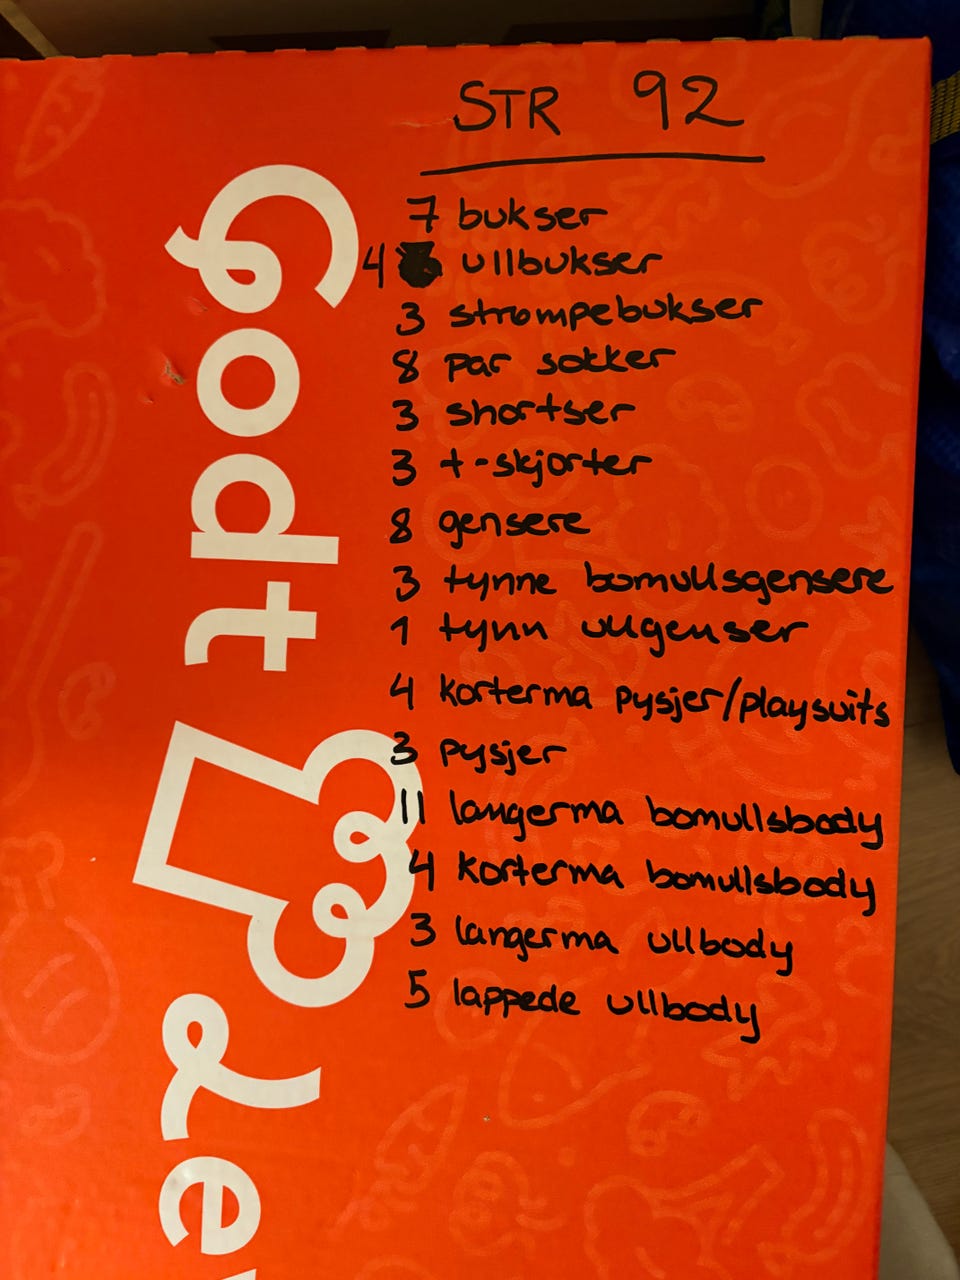 STR 92
7 bukser
4 ullbukser
3 strømpebukser
8 par sokker
3 shortser
3 t-skjorter
8 gensere
3 tynne bomullsgensere
1 tynn ullgenser
4 korterma pysjer/playsuits
3 pysjer
11 langerma bomullsbody
4 korterma bomullsbody
3 langerma ullbody
5 lappede ullbody
Godt
Le